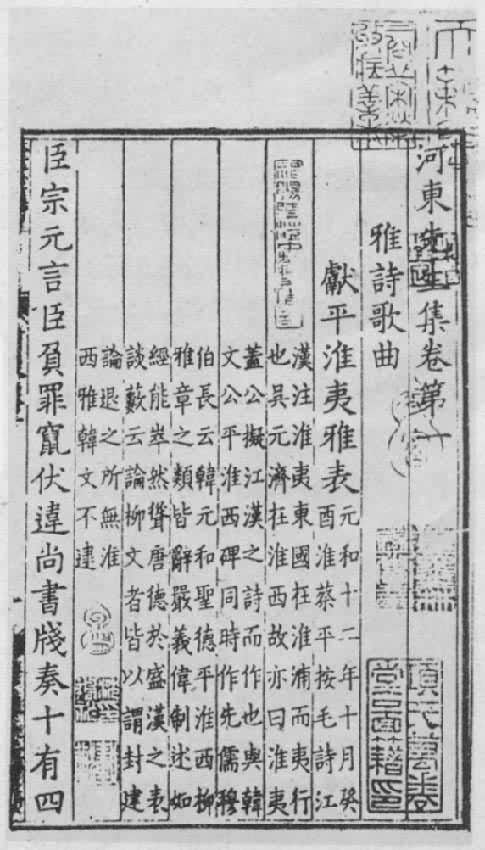 河東先生集卷第一
雅詩歌曲
獻平淮夷雅表
元和十二年十月癸
酉淮蔡平按毛詩江
漢注淮夷東國在淮浦而夷行
也吳元濟在淮西故亦曰淮夷
蓋公擬江漢之詩而作也與韓
文公平淮西碑同時作先儒穆
伯長云韓元和聖德平淮西柳
雅章之類皆辭嚴義偉制述如
經能崒然聳唐德於盛漢之表
談藪云論柳文者皆以謂封建
論退之所無淮
西雅韓文不逮
臣宗元言臣負罪竄伏違尚書牋奏十有四
項氏萬卷
堂圖籍印